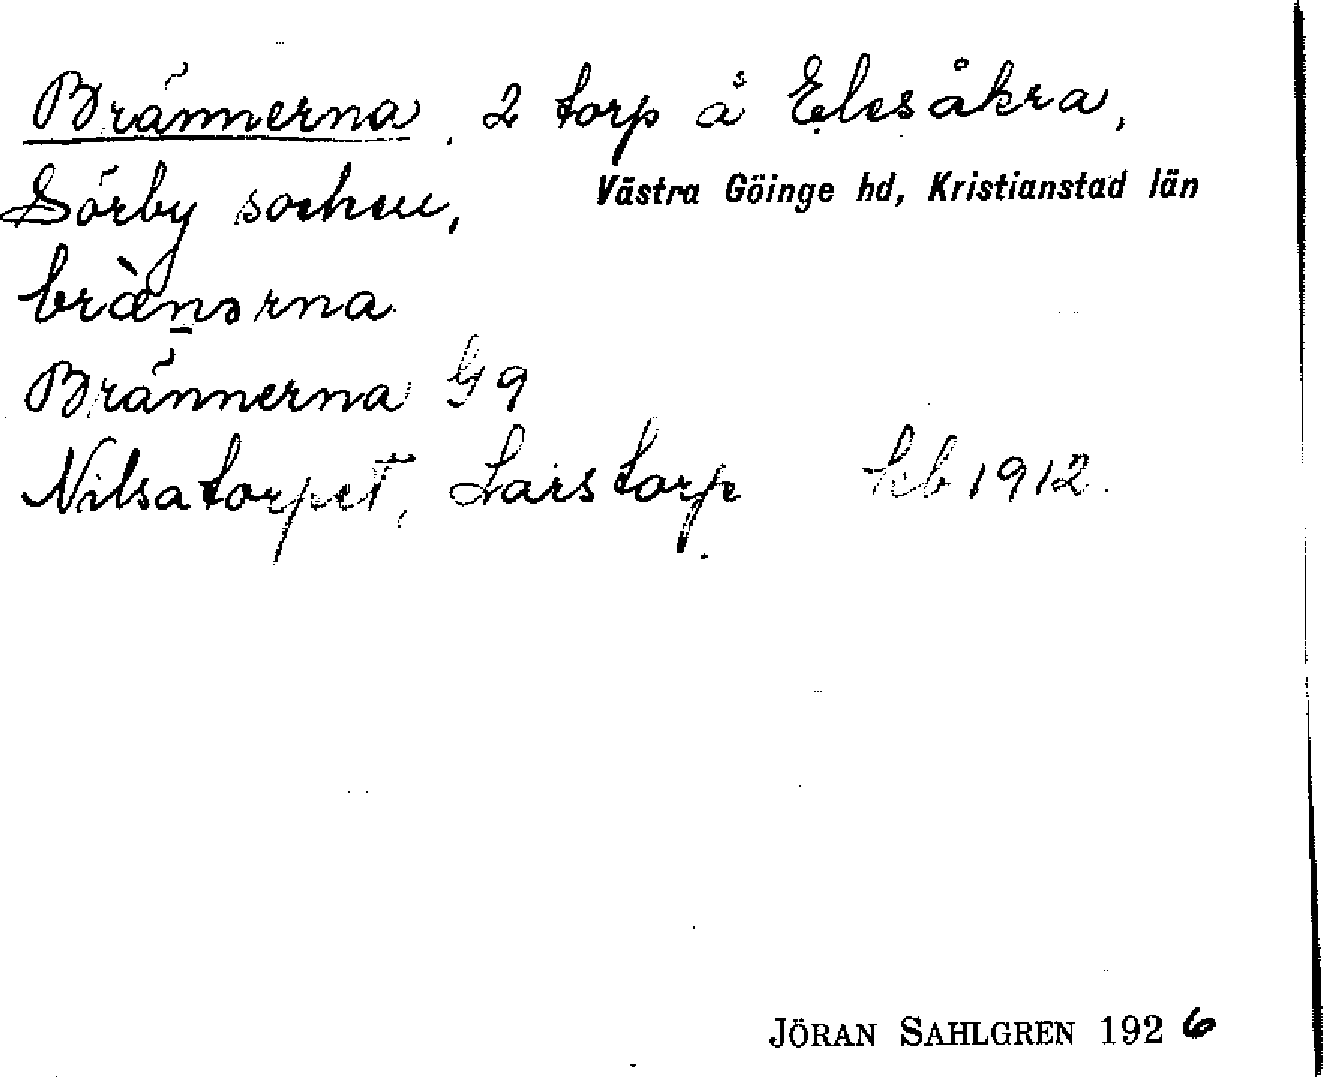 Brännerna, 2 torp å Elesåkra,
Sörby socken, Västra Göinge hd, Kristianstad län
bràn̲ərna
Brännerna G 9
Nilsatorpet, Larstorp kb 1912.
JÖRAN SAHLGREN 1926